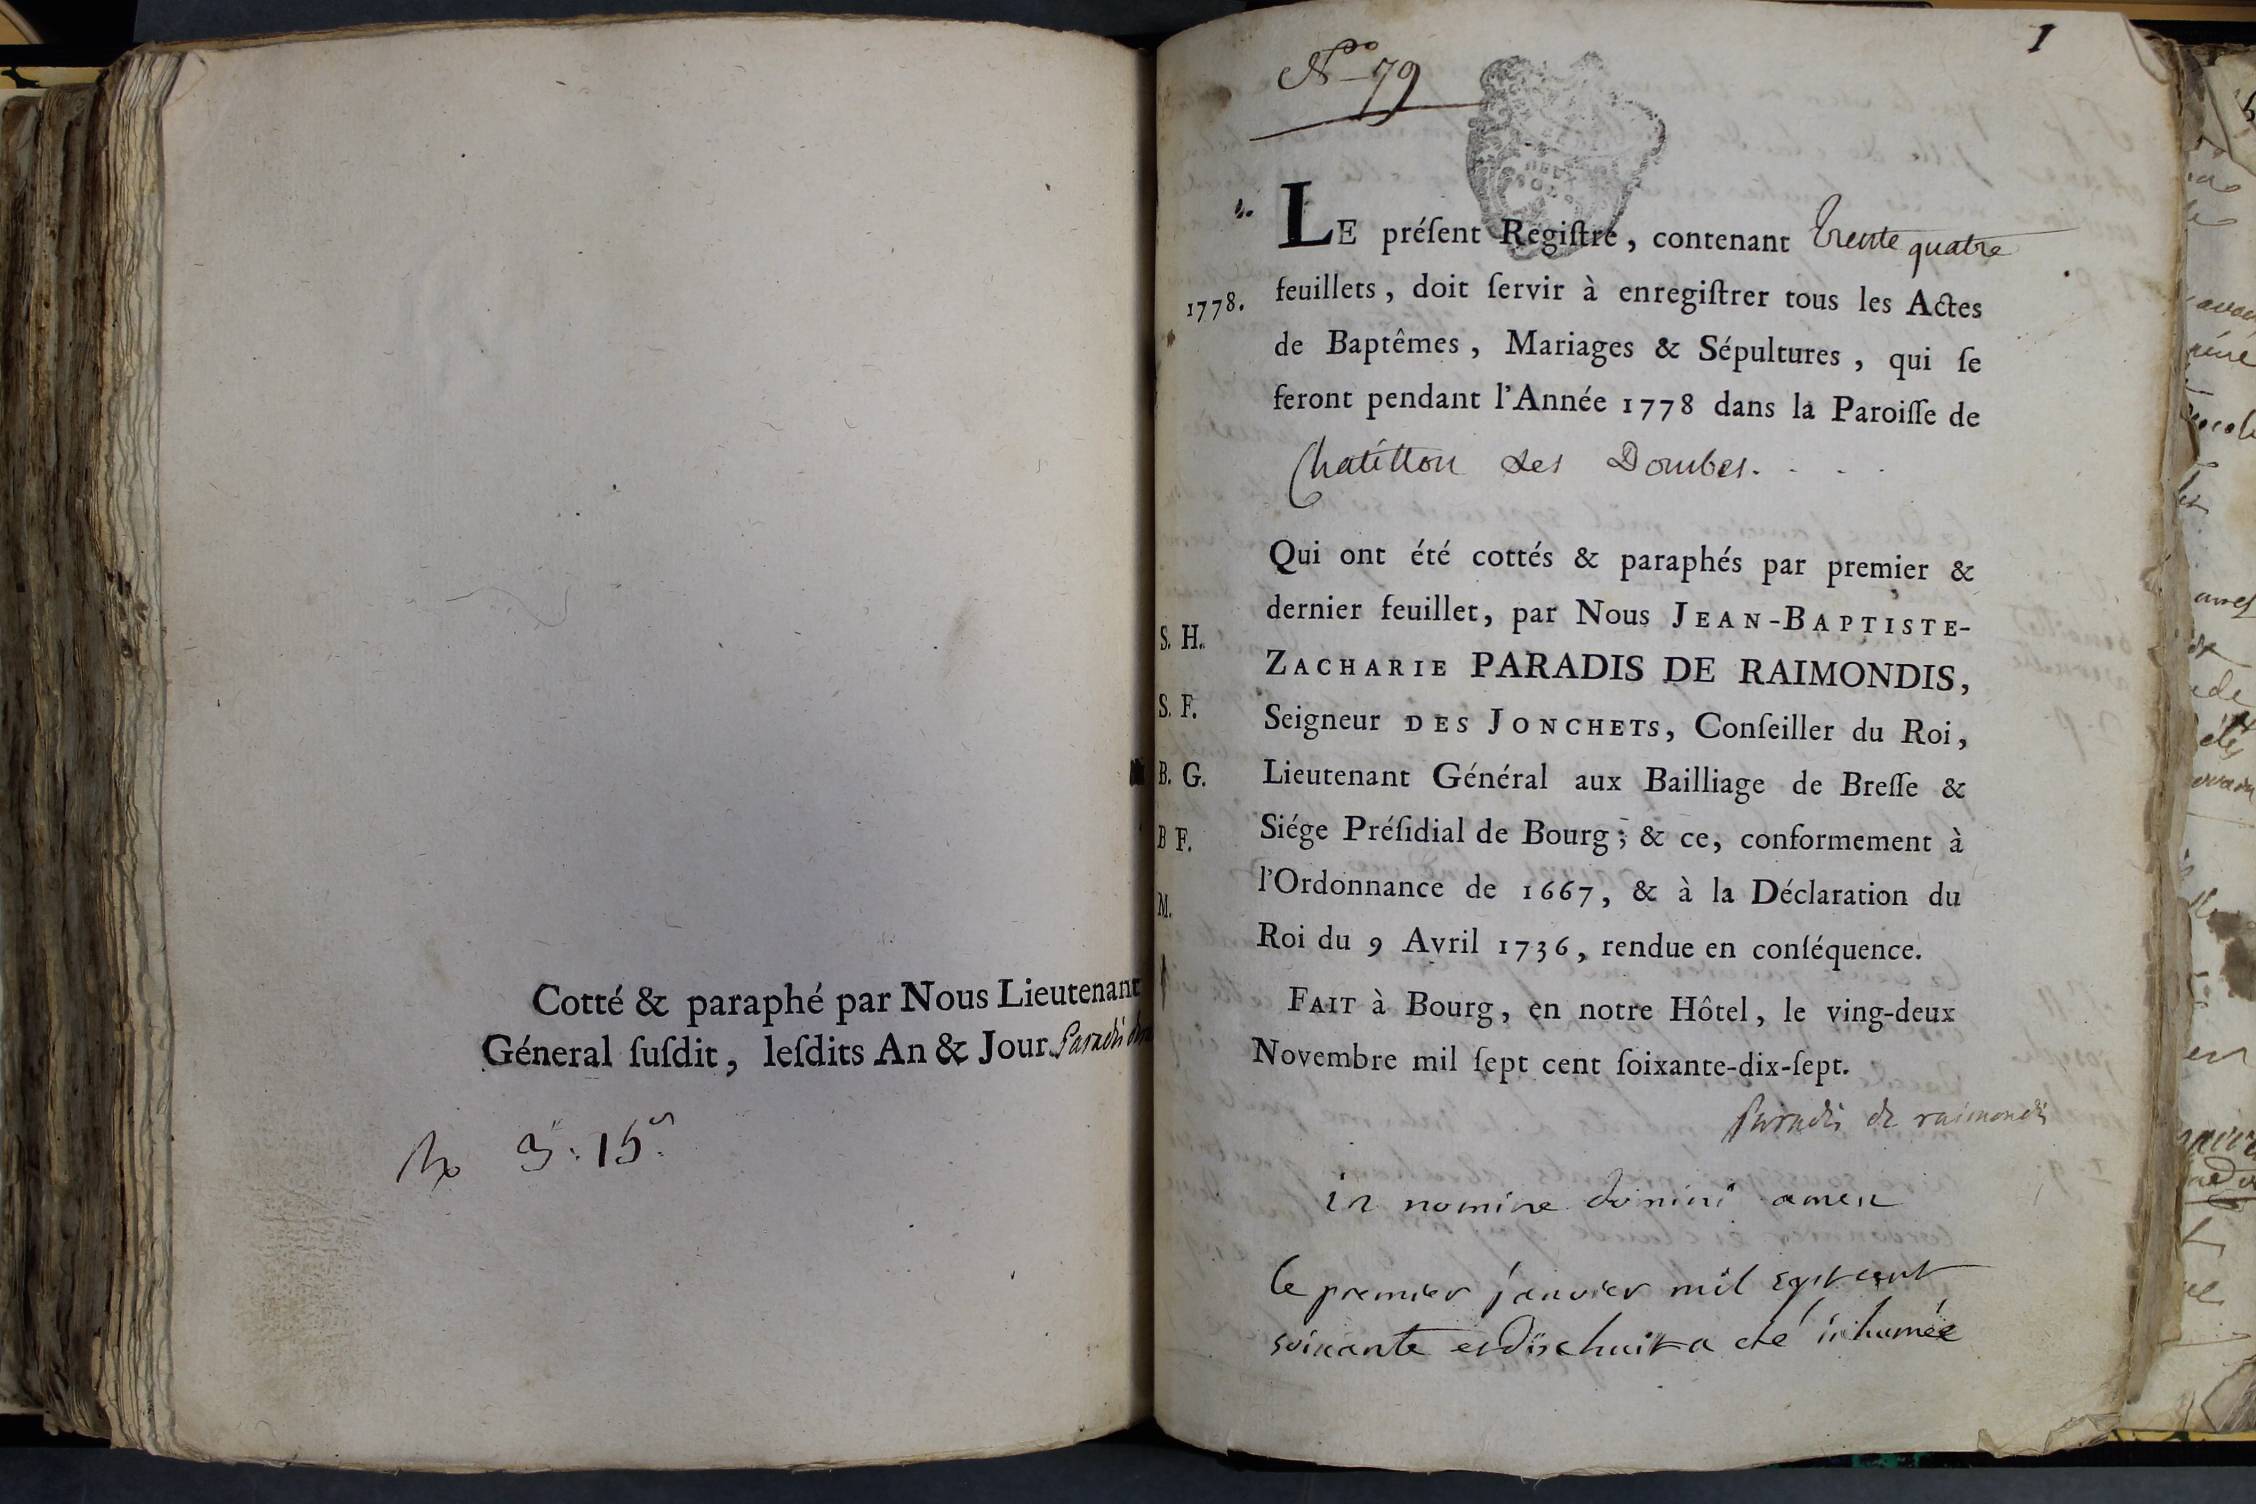 Cotté & paraphé par Nous Lieutenant
Géneral ſuſdit, leſdits An & Jour. Paradis
3 : 15
1
No 79
LE préſent Regiſtre, contenant trente quatre
1778.
feuillets, doit ſervir à enregiſtrer tous les Actes
de Baptêmes, Mariages & Sépultures, qui ſe
feront pendant l'Année 1778 dans la Paroiſſe de
Chatillon les Dombes. . . .
Qui ont été cottés & paraphés par premier &
dernier feuillet, par Nous JEAN-BAPTISTE-
S. H.
ZACHARIE PARADIS DE RAIMONDIS,
S. F.
Seigneur DES JONCHETS, Conſeiller du Roi,
B. G.
Lieutenant Général aux Bailliage de Breſſe &
B F.
Siége Préſidial de Bourg ; & ce, conformement à
M.
l'Ordonnance de 1667, & à la Déclaration du
Roi du 9 Avril 1736, rendue en conſéquence.
FAIT à Bourg, en notre Hôtel, le ving-deux
Novembre mil ſept cent ſoixante-dix-ſept.
Paradis de raimondis
in nomine domini amen
le premier janvier mil sept cent
soixante et dixhuit a eté inhumée